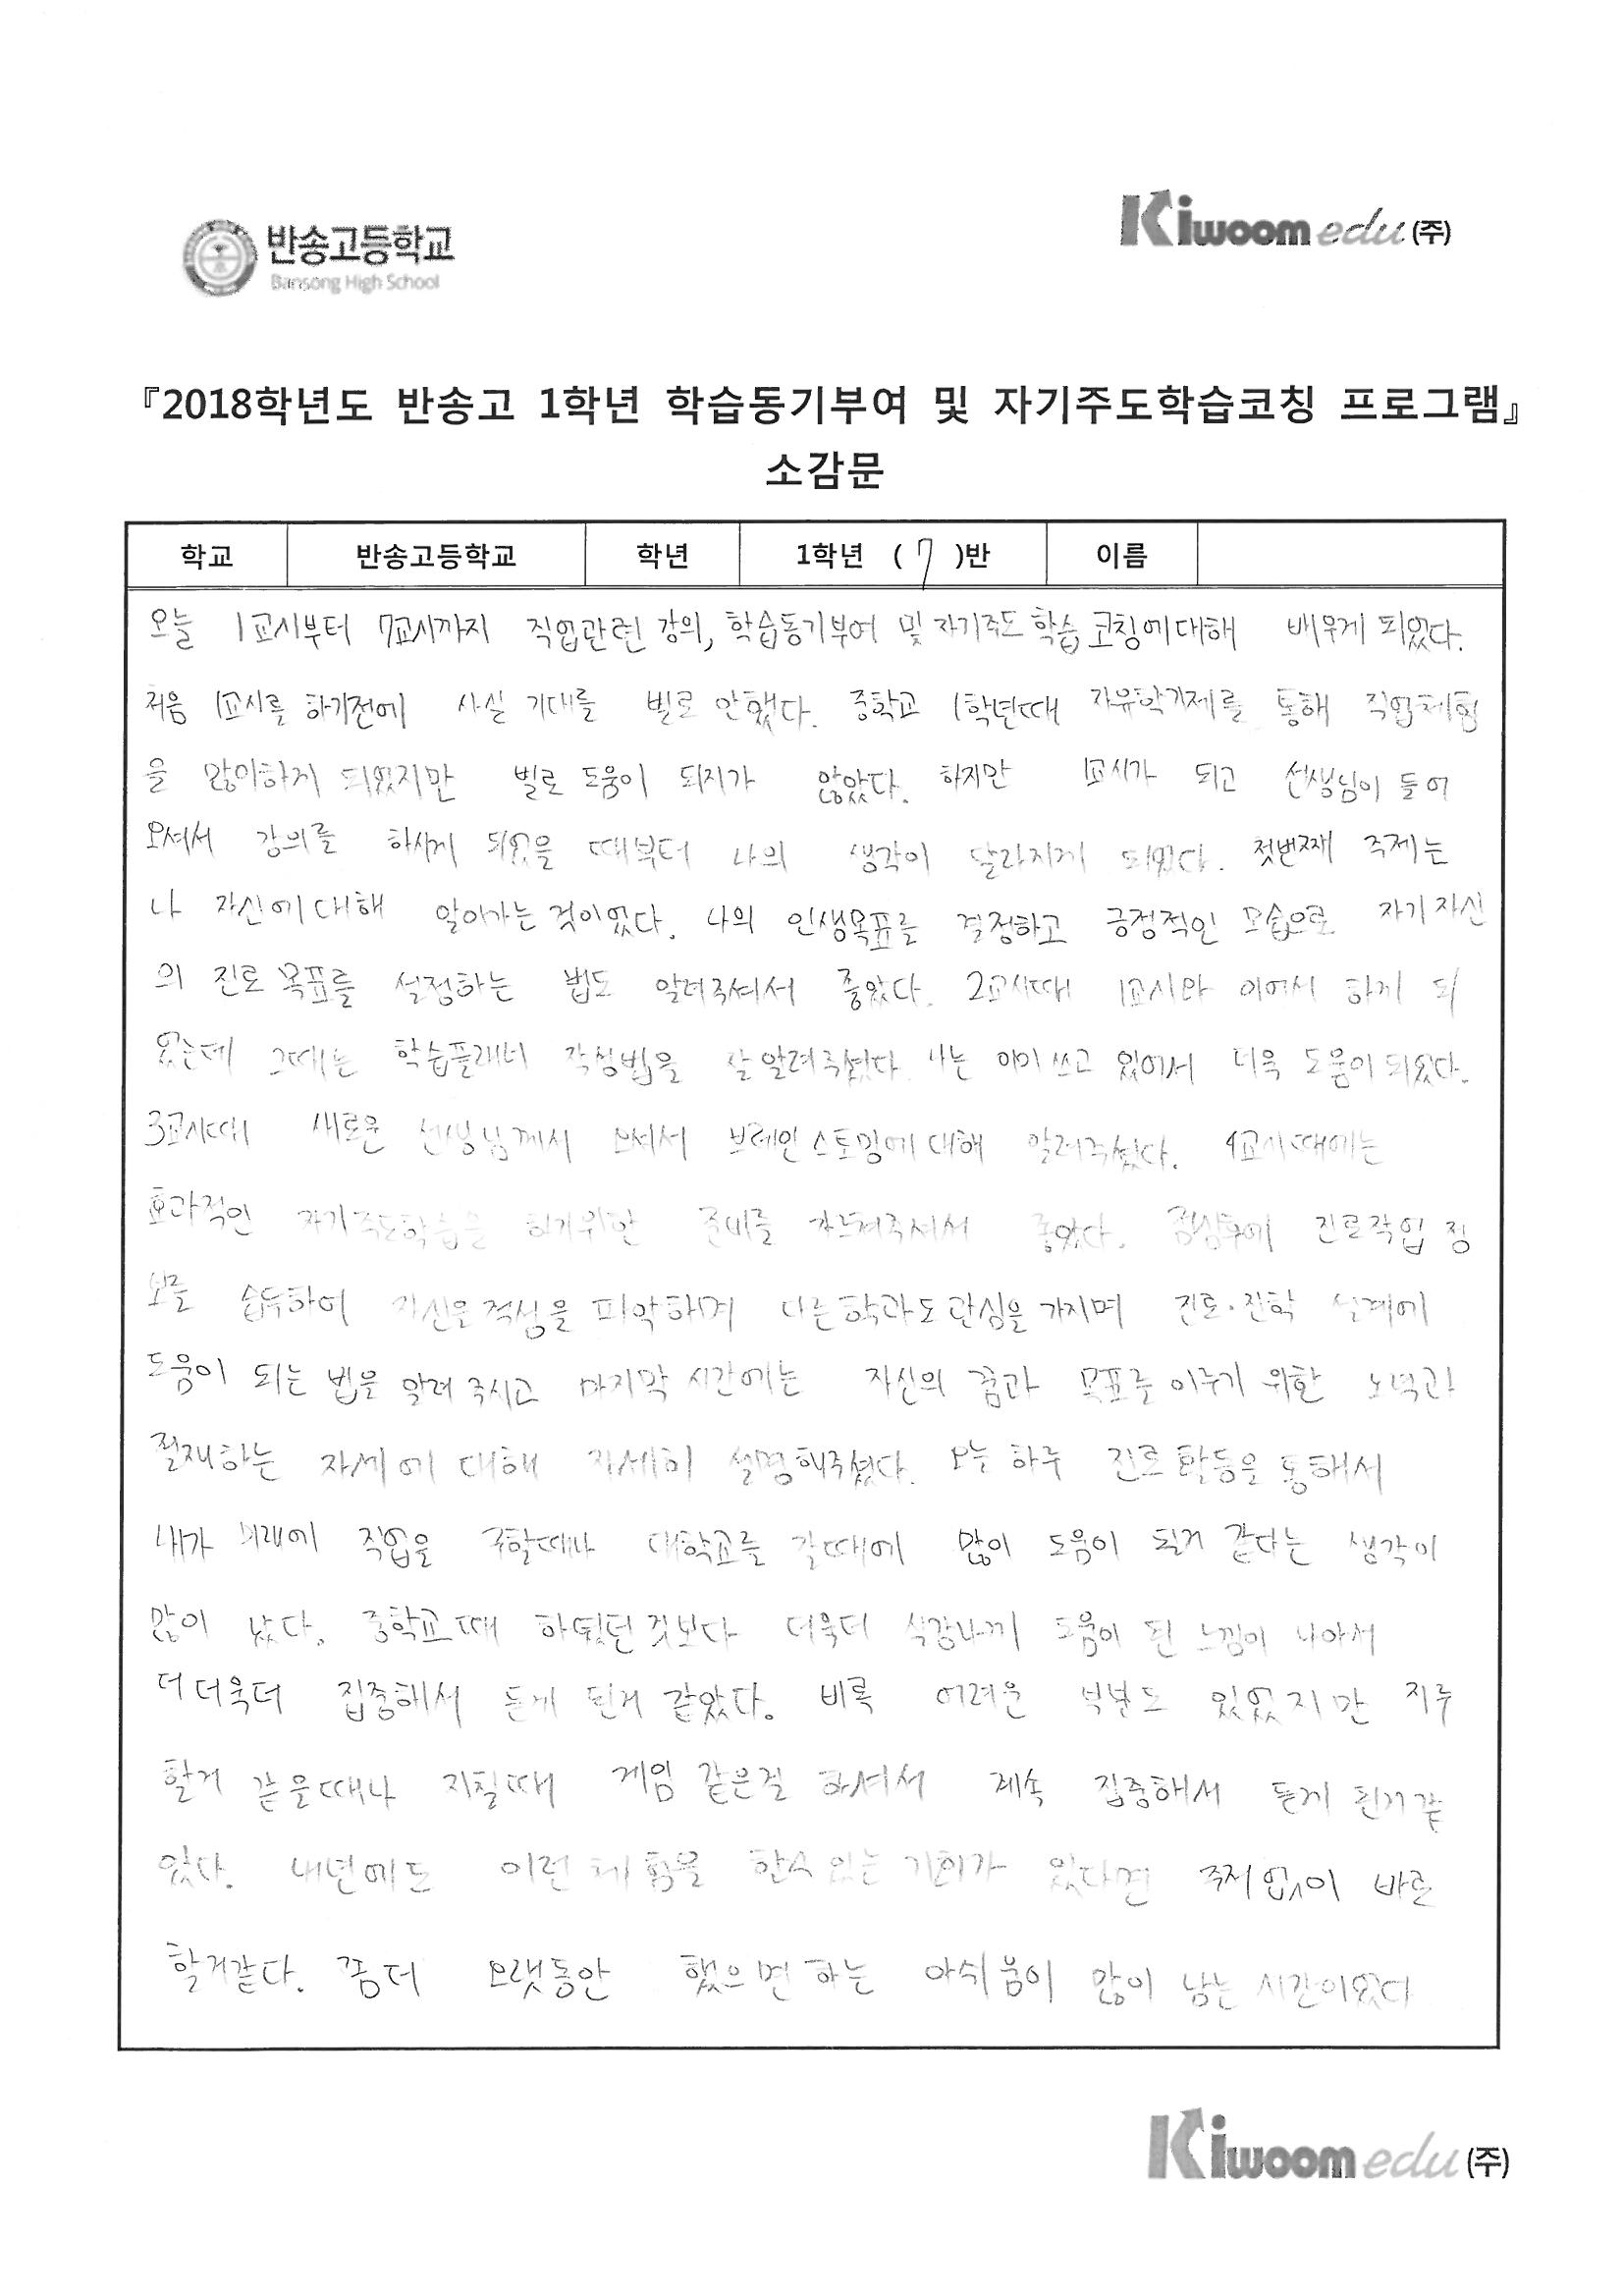 반송고등학교
Bansong High School
Kiwoom edu (주)
『2018학년도 반송고 1학년 학습동기부여 및 자기주도학습코칭 프로그램』
소감문
학교 반송고등학교 학년 1학년 ( 7 )반 이름
오늘 1교시부터 7교시까지 직업관련 강의, 학습동기부여 및 자기주도 학습 코칭에대해 배우게 되었다.
처음 1교시를 하기전에 사실 기대를 별로 안했다. 중학교 1학년때 자유학기제를 통해 직업체험
을 많이하게 되었지만 별로 도움이 되지가 않았다. 하지만 1교시가 되고 선생님이 들어
오셔서 강의를 하시게 되었을 때부터 나의 생각이 달라지게 되었다. 첫번째 주제는
나 자신에대해 알아가는 것이었다. 나의 인생목표를 결정하고 긍정적인 모습으로 자기자신
의 진로 목표를 설정하는 법도 알려주셔서 좋았다. 2교시때 1교시와 이어서 하게 되
었는데 그때는 학습플래너 작성법을 잘 알려주셨다. 나는 이미 쓰고 있어서 더욱 도움이 되었다.
3교시때 새로운 선생님께서 오셔서 브레인스토밍에 대해 알려주셨다. 4교시때에는
효과적인 자기주도학습을 하기위한 준비를 가르쳐주셔서 좋았다. 점심후에 진로직업 정
보를 습득하여 자신의 적성을 파악하며 다른학과도 관심을 가지며 진로·진학 설계에
도움이 되는 법을 알려 주시고 마지막 시간에는 자신의 꿈과 목표를 이루기 위한 노력과
절제하는 자세에 대해 자세히 설명해주셨다. 오늘 하루 진로 활동을 통해서
내가 미래에 직업을 구할때나 대학교를 갈때에 많이 도움이 될거 같다는 생각이
많이 났다. 중학교때 하던 것보다 더욱더 도움이 된 느낌이 나아서
더 더욱더 집중해서 듣게 된거 같았다. 비록 어려운 부분도 있었지만 지루
할거 같을때나 지칠때 게임 같은걸 하셔서 계속 집중해서 듣게 된거같
았다. 내년에도 이런 체험을 할수 있는 기회가 있다면 주저없이 바로
할거같다. 좀더 오랫동안 했으면 하는 아쉬움이 많이 남는 시간이었다
Kiwoom edu (주)